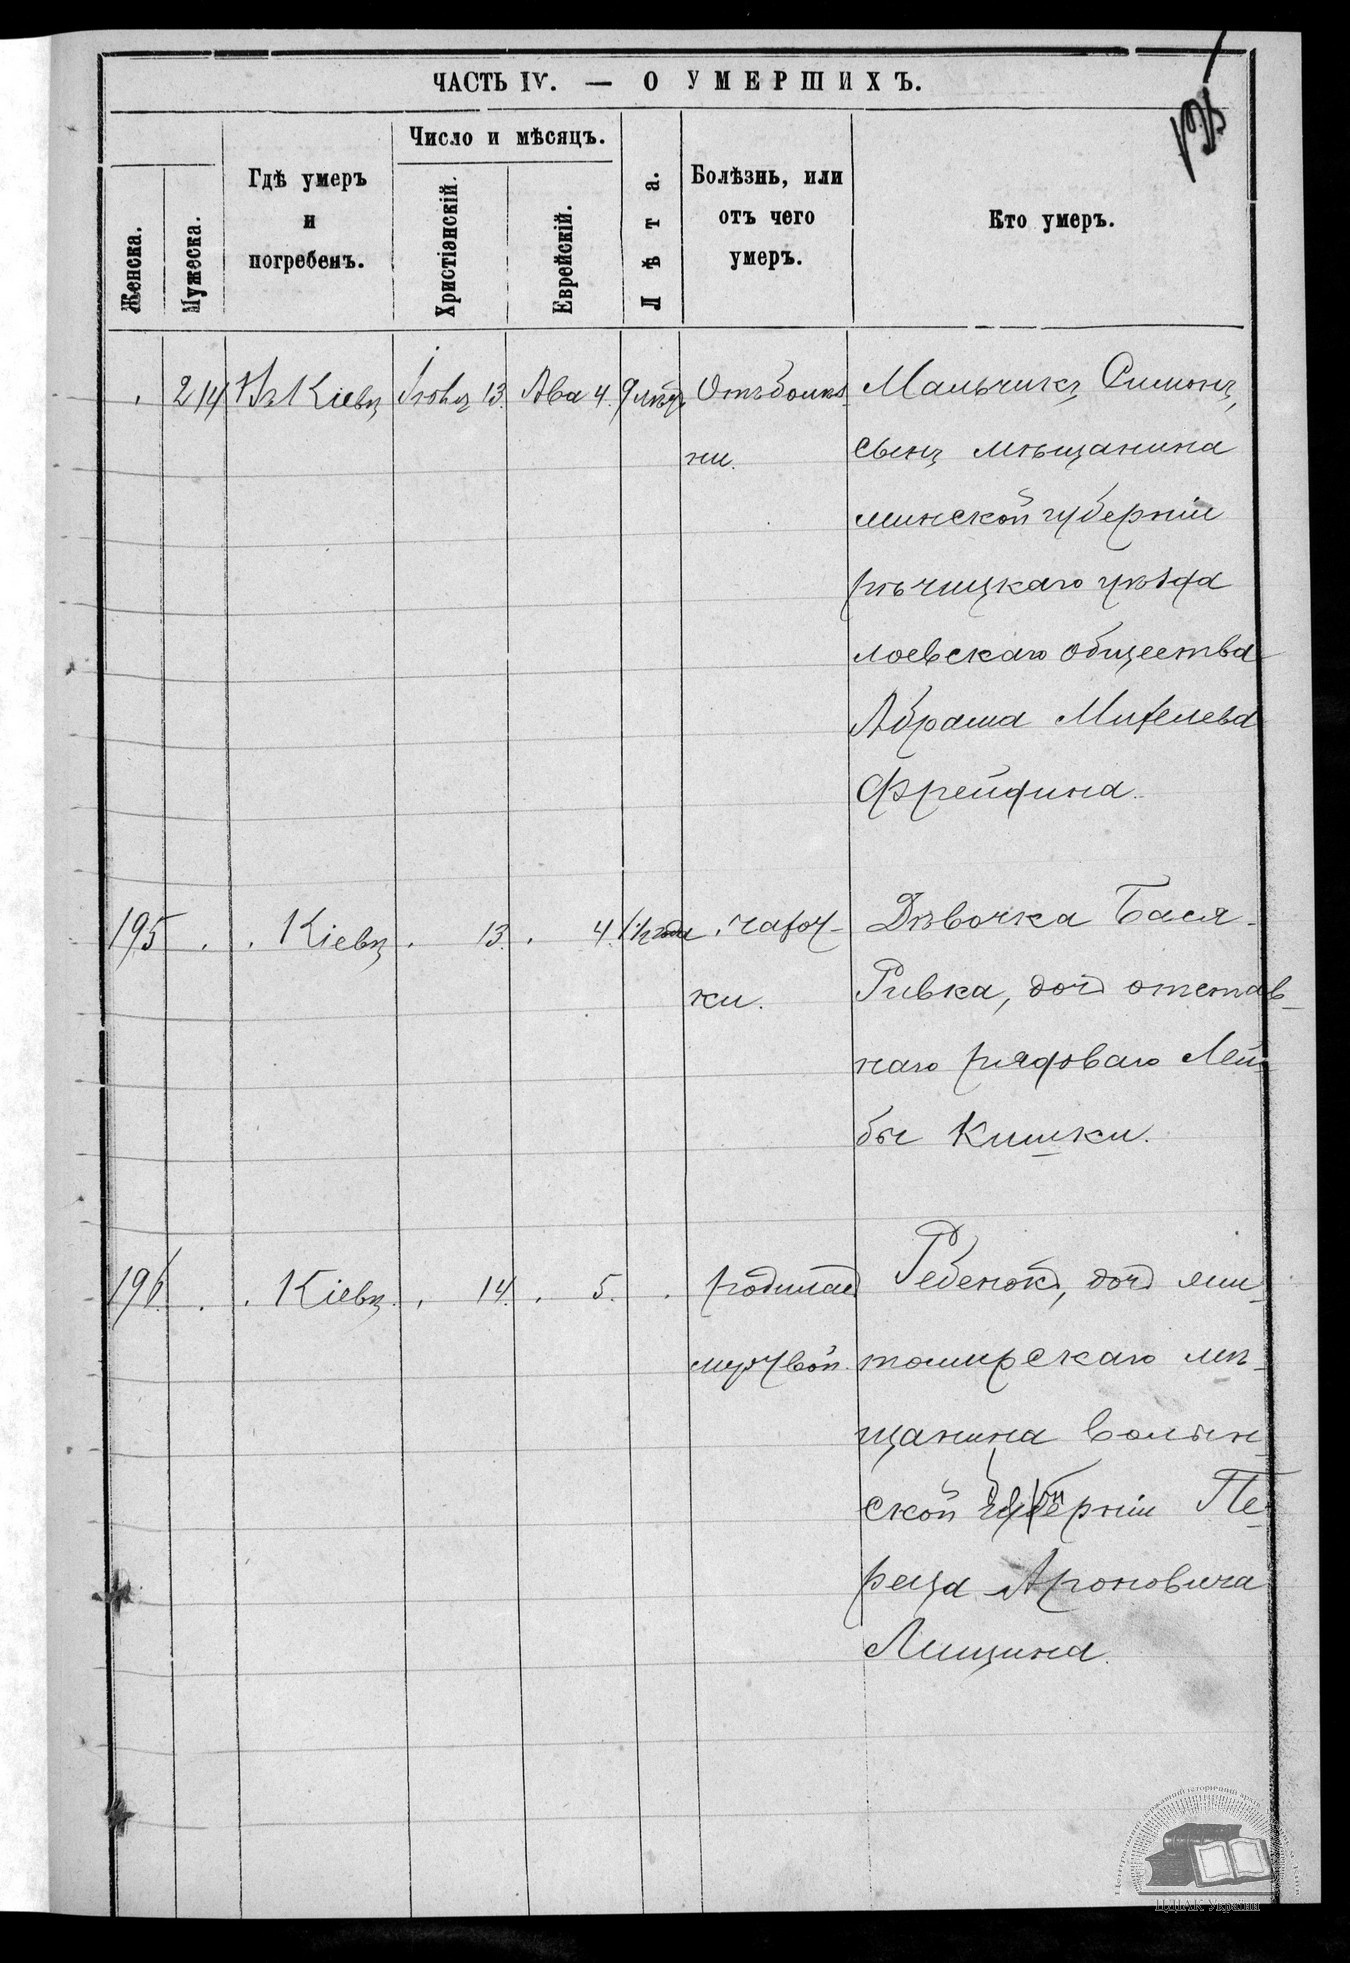 ЧАСТЬ IV. — О УМЕРШИХЪ.
Женска.
Мужеска.
Гдѣ умеръ
и
погребенъ.
Число и мѣсяцъ.
Христіэнскій.
Еврейскій.
Лѣта.
Болѣзнь, или
отъ чего
умеръ.
Кто умеръ.
214 Въ Кіевѣ Іюня 13. Ава 4. 9 лѣтъ Отъ болѣз Мальчикъ Симонъ,
ни. сынъ мѣщанина
минской губерніи
рѣчицкаго уѣзда
лоевскаго общества
Абрама Михелева
Фрейдина.
195 Кіевѣ 13. 4. 1½ года чахот- Дѣвочка Бася-
ки. Ривка, дочь отстав-
наго рядоваго Лей-
бы Кишки.
196. Кіевѣ. 14. 5. родилась Ребенокъ, дочь жи-
мертвой. томирскаго мѣ-
щанина Волын-
ской губерніи Пе-
реца Ароновича
Лищина.
ЦДІАК України